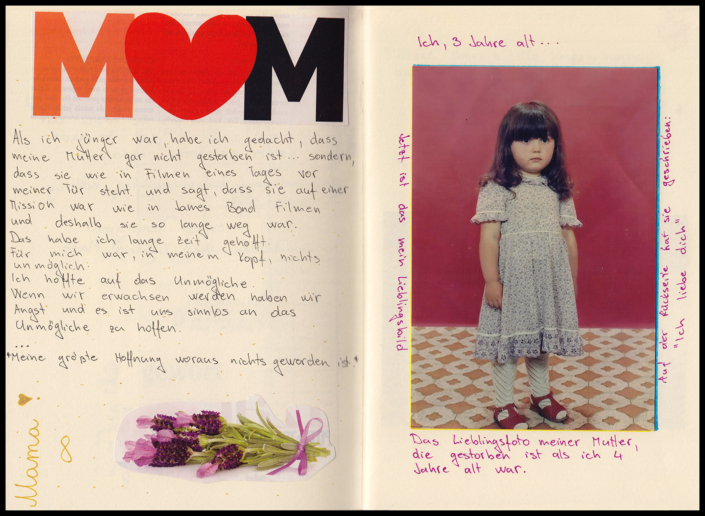 MOM
Als ich jünger war, habe ich gedacht, dass
meine Mutter gar nicht gestorben ist... sondern,
dass sie wie in Filmen eines Tages vor
meiner Tür steht und sagt, dass sie auf einer
Mission war wie in James Bond Filmen
und deshalb sie so lange weg war.
Das habe ich lange zeit gehofft.
Für mich war, in meinem Kopf, nichts
unmöglich.
Ich hoffte auf das Unmögliche.
Wenn wir erwachsen werden haben wir
Angst und es ist uns sinnlos an das
Unmögliche zu hoffen.
...
"Meine größte Hoffnung woraus nichts geworden ist."
Mama ∞
Ich, 3 Jahre alt...
Jetzt ist das mein Lieblingsbild
Auf der Rückseite hat sie geschrieben:
"Ich liebe dich"
Das Lieblingsfoto meiner Mutter,
die gestorben ist als ich 4
Jahre alt war.